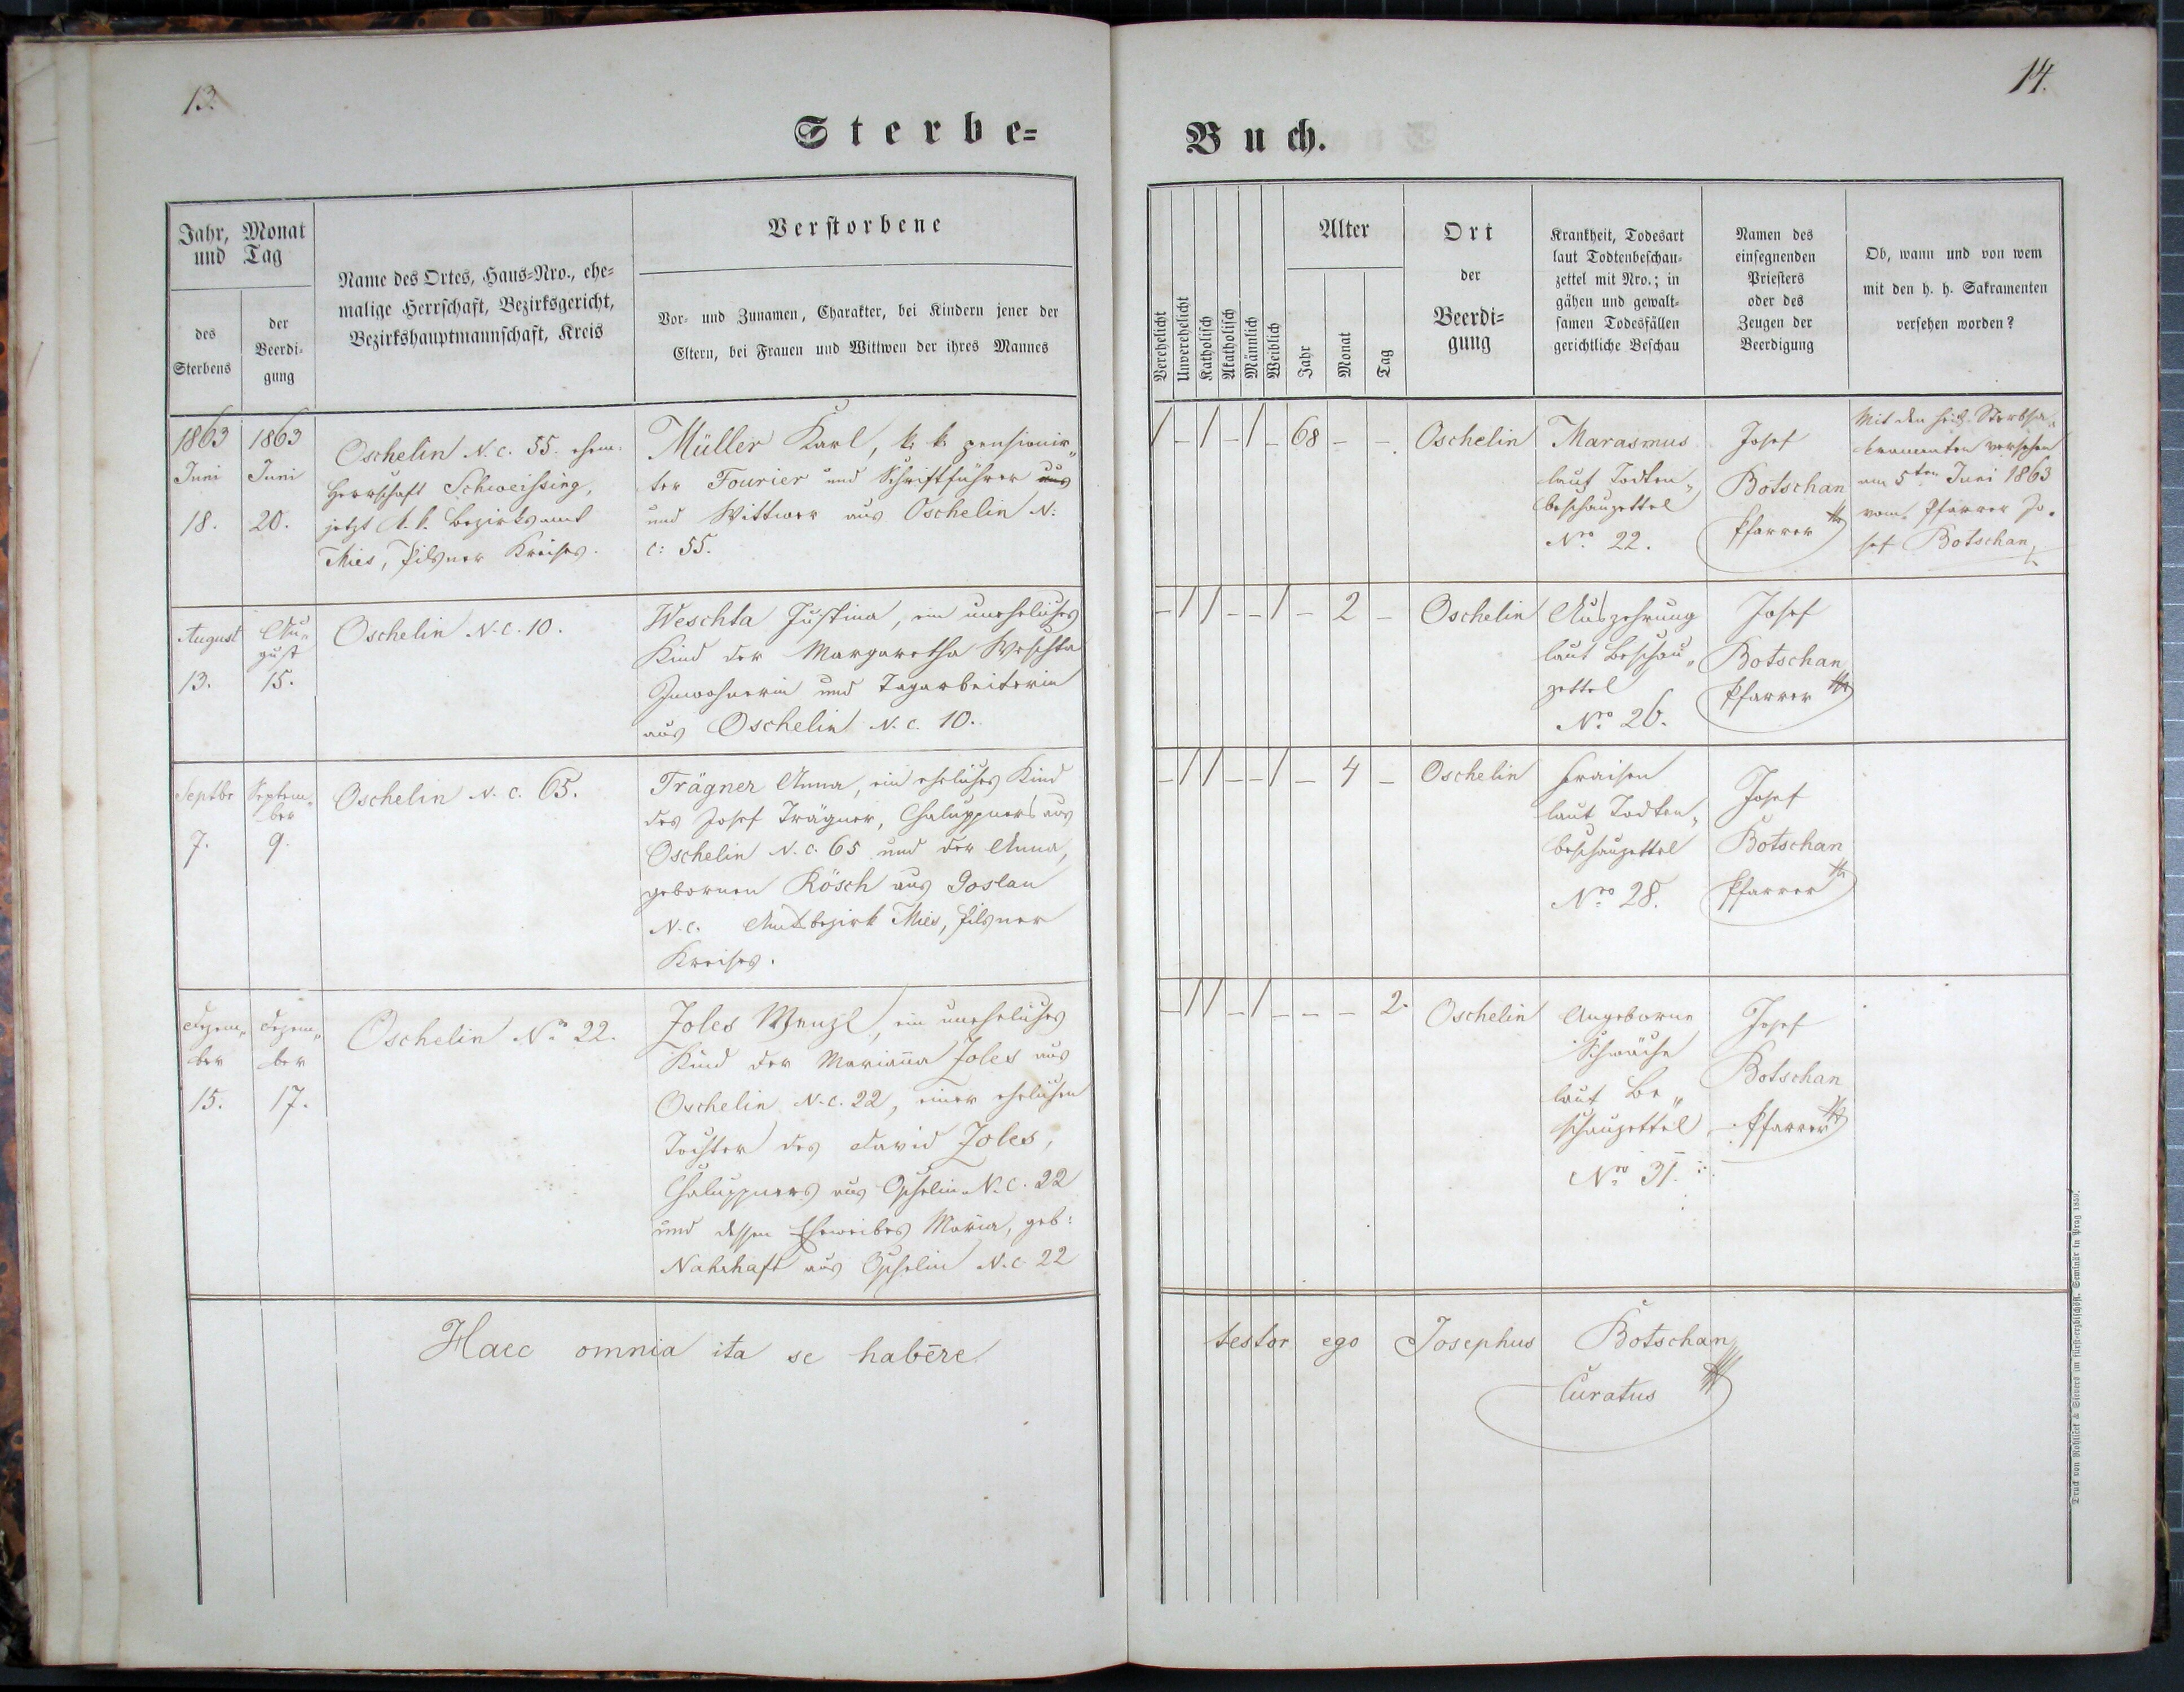 13.
14.
Sterbe=
Buch.
Jahr, Monat
und Tag
des
Sterbens
der
Beerdi-
gung
Name des Ortes, Haus=Nro., ehe=
malige Herrschaft, Bezirksgericht,
Bezirkshauptmannschaft, Kreis
Verstorbene
Vor- und Zunamen, Charakter, bei Kindern jener der
Eltern, bei Frauen und Wittwen der ihres Mannes
Verehelicht
Unverehelicht
Katholisch
Akatholisch
Männlich
Weiblich
Alter
Jahr
Monat
Tag
Ort
der
Beerdi=
gung
Krankheit, Todesart
laut Todtenbeschau-
zettel mit Nro.; in
gähen und gewalt-
samen Todesfällen
gerichtliche Beschau
Namen des
einsegnenden
Priesters
oder des
Zeugen der
Beerdigung
Ob, wann und von wem
mit den h. h. Sakramenten
versehen worden?
1863
Juni
18.
1863
Juni
20.
Oschelin N. c. 55. ehem.
Herrschaft Schweissing,
jetzt k. k. Bezirksamt
Mies, Pilsner Kreises.
Müller Karl, k. k. pensionir„
ter Fourier und Schriftführer aus
und Wittwer aus Oschelin N:
c: 55.
1 - 1 - 1 - 68 - -
Oschelin
Marasmus
laut Todten„
beschauzettel
Nro 22.
Josef
Botschan
Pfarrer
Mit den heil. Sterbsa„
kramenten versehen
am 5ten Juni 1863
vom Pfarrer Jo„
sef Botschan
August
13.
Au„
gust
15.
Oschelin N. C. 10.
Weschta Justina, ein uneheliches
Kind der Margaretha Weschta
Inwohnerin und Tagarbeiterin
aus Oschelin N. c. 10.
- 1 1 - - 1 - 2 -
Oschelin
Auszehrung
laut Beschau„
zettel
Nro 26.
Josef
Botschan
Pfarrer
Septbr
7.
Septem„
ber
9.
Oschelin N. c. 65.
Trägner Anna, ein eheliches Kind
des Josef Trägner, Chaluppners aus
Oschelin N. c. 65 und der Anna,
gebornen Rösch aus Goslau
N. c. Amtsbezirk Mies, Pilsner
Kreises.
- 1 1 - - 1 - 4 -
Oschelin
Fraisen
laut Todten„
beschauzettel
Nro 28.
Josef
Botschan
Pfarrer
Dezem„
ber
15.
Dezem„
ber
17.
Oschelin No 22.
Joles Wenzl, ein uneheliches
Kind der Marianna Joles aus
Oschelin N. c. 22, einer ehelichen
Tochter des David Joles,
Chaluppners aus Oschelin N. c. 22
und dessen Eheweibes Maria, geb:
Nahrhaft aus Oschelin N. c. 22
- 1 1 - 1 - - - 2.
Oschelin
Angeborne
Schwäche
laut Be„
schauzettel
Nro 31.
Josef
Botschan
Pfarrer
Haec omnia ita se habēre
testor ego Josephus Botschan
Curatus
Druck von Rohliček & Sievers im fürst-erzbischöfl. Seminär in Prag 1859.